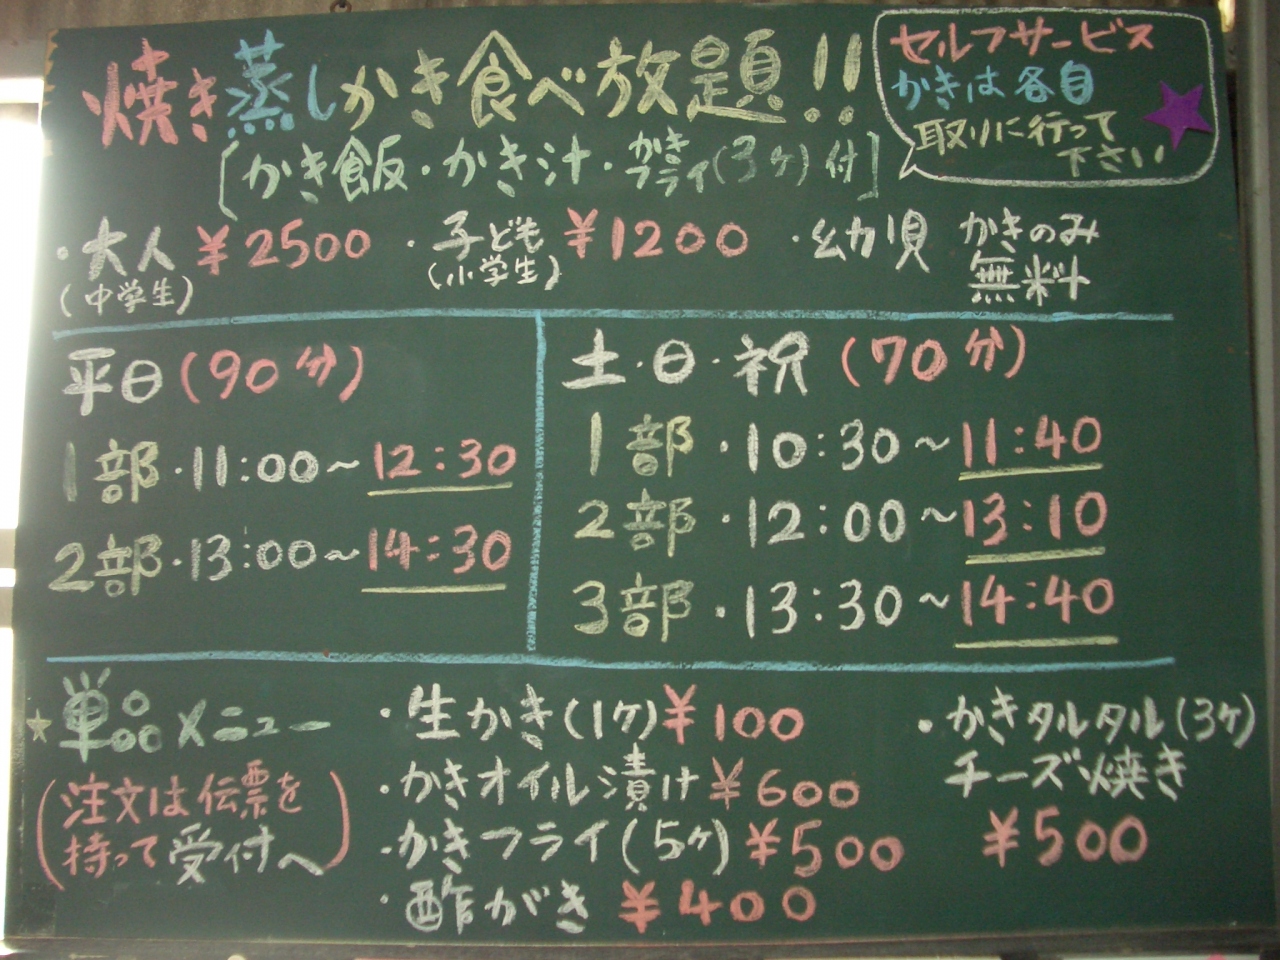 焼き蒸しかき食べ放題!!
[かき飯・かき汁・かきフライ(3ヶ)付]
セルフサービス
かきは各自
取りに行って
下さい
・大人 ¥2500
(中学生)
・子ども ¥1200
(小学生)
・幼児 かきのみ
無料
平日(90分)
1部・11:00~12:30
2部・13:00~14:30
土・日・祝(70分)
1部・10:30~11:40
2部・12:00~13:10
3部・13:30~14:40
☆単品メニュー
(注文は伝票を
持って受付へ)
・生かき(1ヶ)¥100
・かきオイル漬け¥600
・かきフライ(5ヶ)¥500
・酢がき ¥400
・かきタルタル(3ヶ)
チーズ焼き
¥500